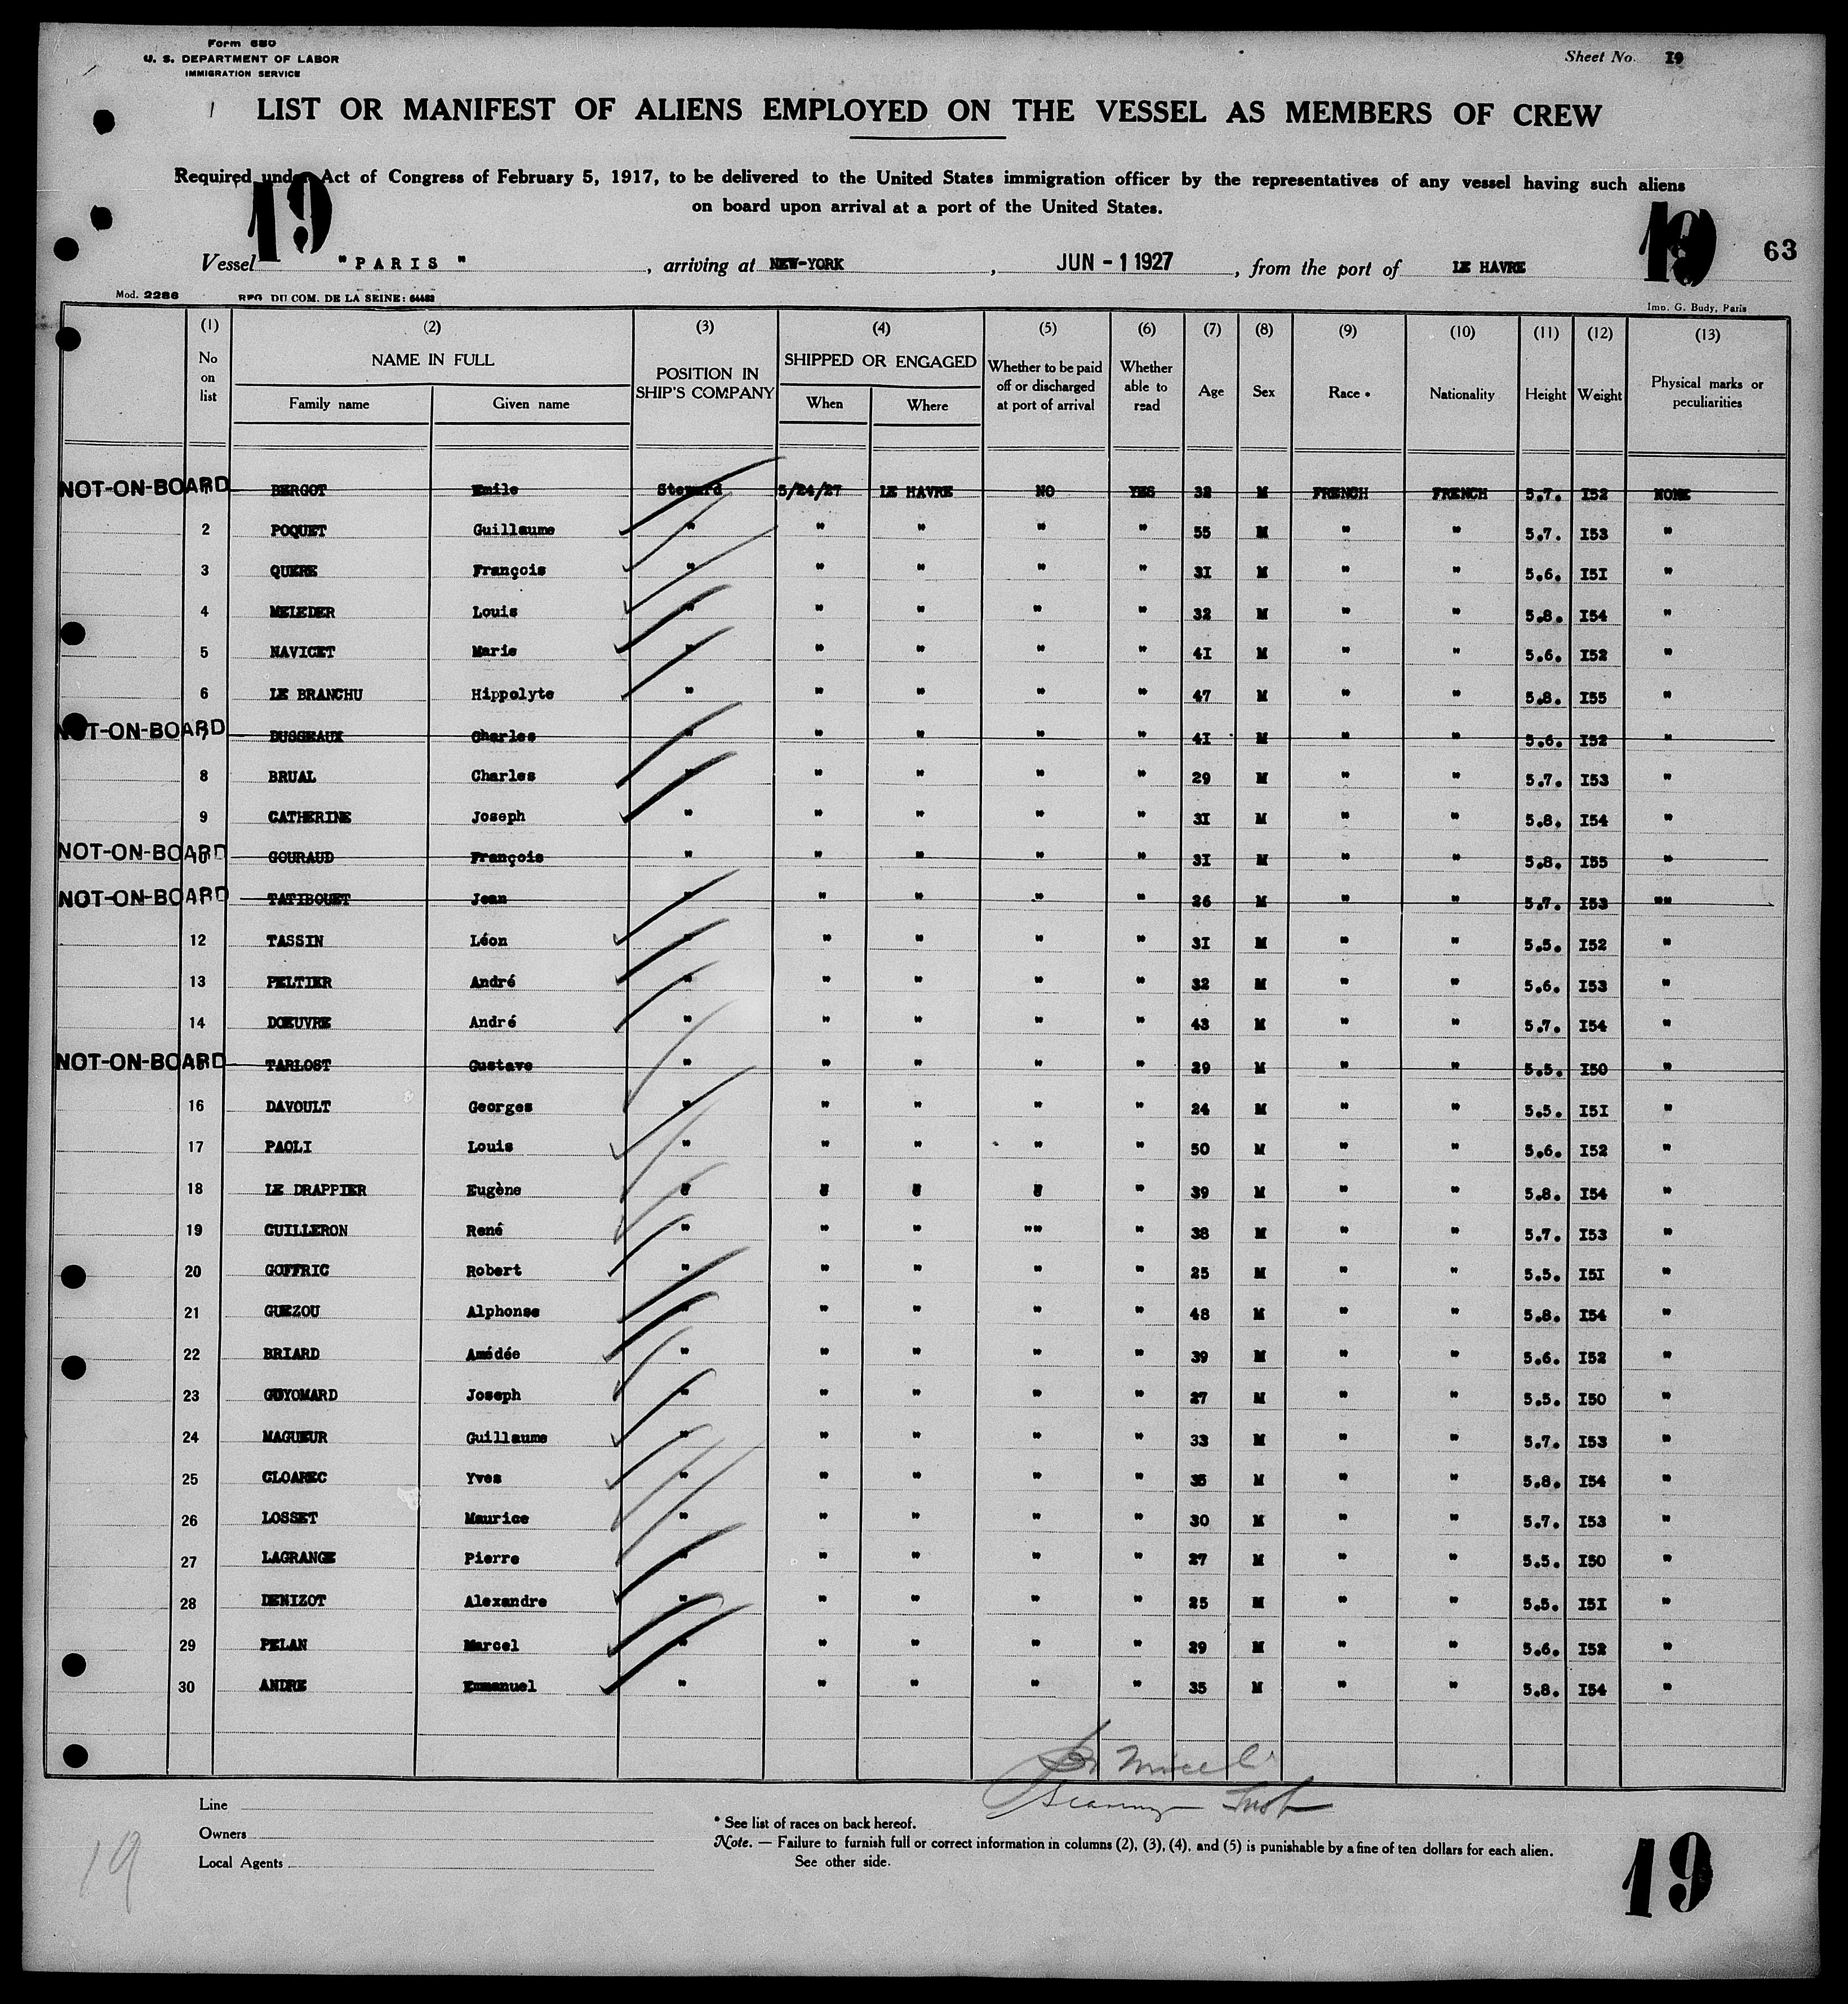 Form 680
U. S. DEPARTMENT OF LABOR
IMMIGRATION SERVICE
Sheet No. 19
LIST OR MANIFEST OF ALIENS EMPLOYED ON THE VESSEL AS MEMBERS OF CREW
Required under Act of Congress of February 5, 1917, to be delivered to the United States immigration officer by the representatives of any vessel having such aliens
on board upon arrival at a port of the United States.
19
19
63
Vessel "PARIS", arriving at NEW-YORK, JUN - 1 1927, from the port of LE HAVRE
Mod. 2286 REG. DU COM. DE LA SEINE: 64483
Imp. G. Budy, Paris
(1) (2) (3) (4) (5) (6) (7) (8) (9) (10) (11) (12) (13)
No on list NAME IN FULL Family name Given name POSITION IN SHIP'S COMPANY SHIPPED OR ENGAGED When Where Whether to be paid off or discharged at port of arrival Whether able to read Age Sex Race * Nationality Height Weight Physical marks or peculiarities
NOT-ON-BOARD 1 BERGOT Emile Steward 5/24/27 LE HAVRE NO YES 32 M FRENCH FRENCH 5.7. I52 NONE
2 POQUET Guillaume " " " " " 55 M " " 5.7. I53 "
3 QUERE François " " " " " 3I M " " 5.6. I5I "
4 MELEDER Louis " " " " " 32 M " " 5.8. I54 "
5 NAVICET Marie " " " " " 4I M " " 5.6. I52 "
6 LE BRANCHU Hippolyte " " " " " 47 M " " 5.8. I55 "
NOT-ON-BOARD 7 DUSSEAUX Charles " " " " " 4I M " " 5.6. I52 "
8 BRUAL Charles " " " " " 29 M " " 5.7. I53 "
9 CATHERINE Joseph " " " " " 3I M " " 5.8. I54 "
NOT-ON-BOARD 10 GOURAUD François " " " " " 3I M " " 5.8. I55 "
NOT-ON-BOARD TATIBOUET Jean " " " " " 26 M " " 5.7. I53 ""
12 TASSIN Léon " " " " " 3I M " " 5.5. I52 "
13 PELTIER André " " " " " 32 M " " 5.6. I53 "
14 DOEUVRE André " " " " " 43 M " " 5.7. I54 "
NOT-ON-BOARD TARLOST Gustave " " " " " 29 M " " 5.5. I50 "
16 DAVOULT Georges " " " " " 24 M " " 5.5. I5I "
17 PAOLI Louis " " " " " 50 M " " 5.6. I52 "
18 LE DRAPPIER Eugène " " " " " 39 M " " 5.8. I54 "
19 GUILLERON René " " " "" " 38 M " " 5.7. I53 "
20 GOFFRIC Robert " " " " " 25 M " " 5.5. I5I "
21 GUEZOU Alphonse " " " " " 48 M " " 5.8. I54 "
22 BRIARD Amédée " " " " " 39 M " " 5.6. I52 "
23 GUYOMARD Joseph " " " " " 27 M " " 5.5. I50 "
24 MAGUEUR Guillaume " " " " " 33 M " " 5.7. I53 "
25 CLOAREC Yves " " " " " 35 M " " 5.8. I54 "
26 LOSSET Maurice " " " " " 30 M " " 5.7. I53 "
27 LAGRANGE Pierre " " " " " 27 M " " 5.5. I50 "
28 DENIZOT Alexandre " " " " " 25 M " " 5.5. I5I "
29 PELAN Marcel " " " " " 29 M " " 5.6. I52 "
30 ANDRE Emmanuel " " " " " 35 M " " 5.8. I54 "
Line
Owners
Local Agents
* See list of races on back hereof.
Note. — Failure to furnish full or correct information in columns (2), (3), (4), and (5) is punishable by a fine of ten dollars for each alien.
See other side.
19
19